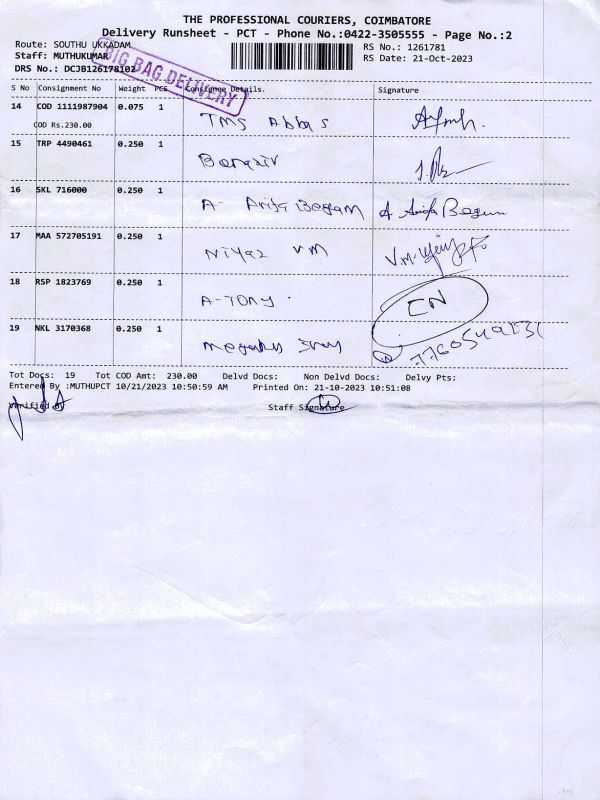 THE PROFESSIONAL COURIERS, COIMBATORE
Delivery Runsheet - PCT - Phone No.:0422-3505555 - Page No.:2
Route: SOUTHU UKKADAM
RS No.: 1261781
Staff: MUTHUKUMAR
RS Date: 21-Oct-2023
DRS No.: DCJB126178102
BIG BAG DELIVERY
S No Consignment No Weight PCS Consignee Details. Signature
14 COD 1111987904 0.075 1 TMS Abbas
COD Rs.230.00
15 TRP 4490461 0.250 1
16 SKL 716000 0.250 1 A- Arifa Begam A. Arifa Begum
17 MAA 572705191 0.250 1 Niyaz VM
18 RSP 1823769 0.250 1 A-TONY CN
19 NKL 3170368 0.250 1
Tot Docs: 19 Tot COD Amt: 230.00 Delvd Docs: Non Delvd Docs: Delvy Pts:
Entered By :MUTHUPCT 10/21/2023 10:50:59 AM Printed On: 21-10-2023 10:51:08
Verified By Staff Signature